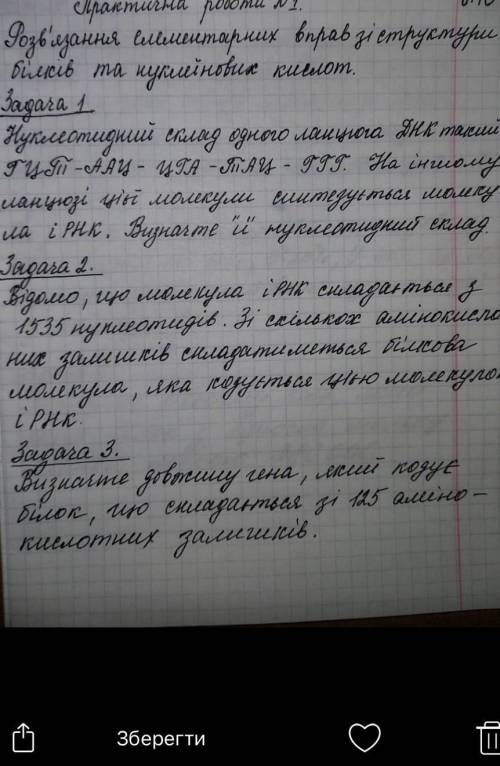 Практична робота №1.
Розв'язання елементарних вправ зі структури
білків та нуклеїнових кислот.
Задача 1
Нуклеотидний склад одного ланцюга ДНК такий
ГЦТ-ААЦ-ЦГА-ТАЦ-ГГГ. На іншому
ланцюзі цієї молекули синтезується молеку
ла і РНК. Визначте "її" нуклеотидний склад.
Задача 2.
Відомо, що молекула і РНК складається з
1535 нуклеотидів. Зі скількох амінокисло
них залишків складатиметься білкова
молекула, яка кодується цією молекулою
і РНК.
Задача 3.
Визначте довжину гена, який кодує
білок, що складається зі 125 аміно-
кислотних залишків.
Зберегти